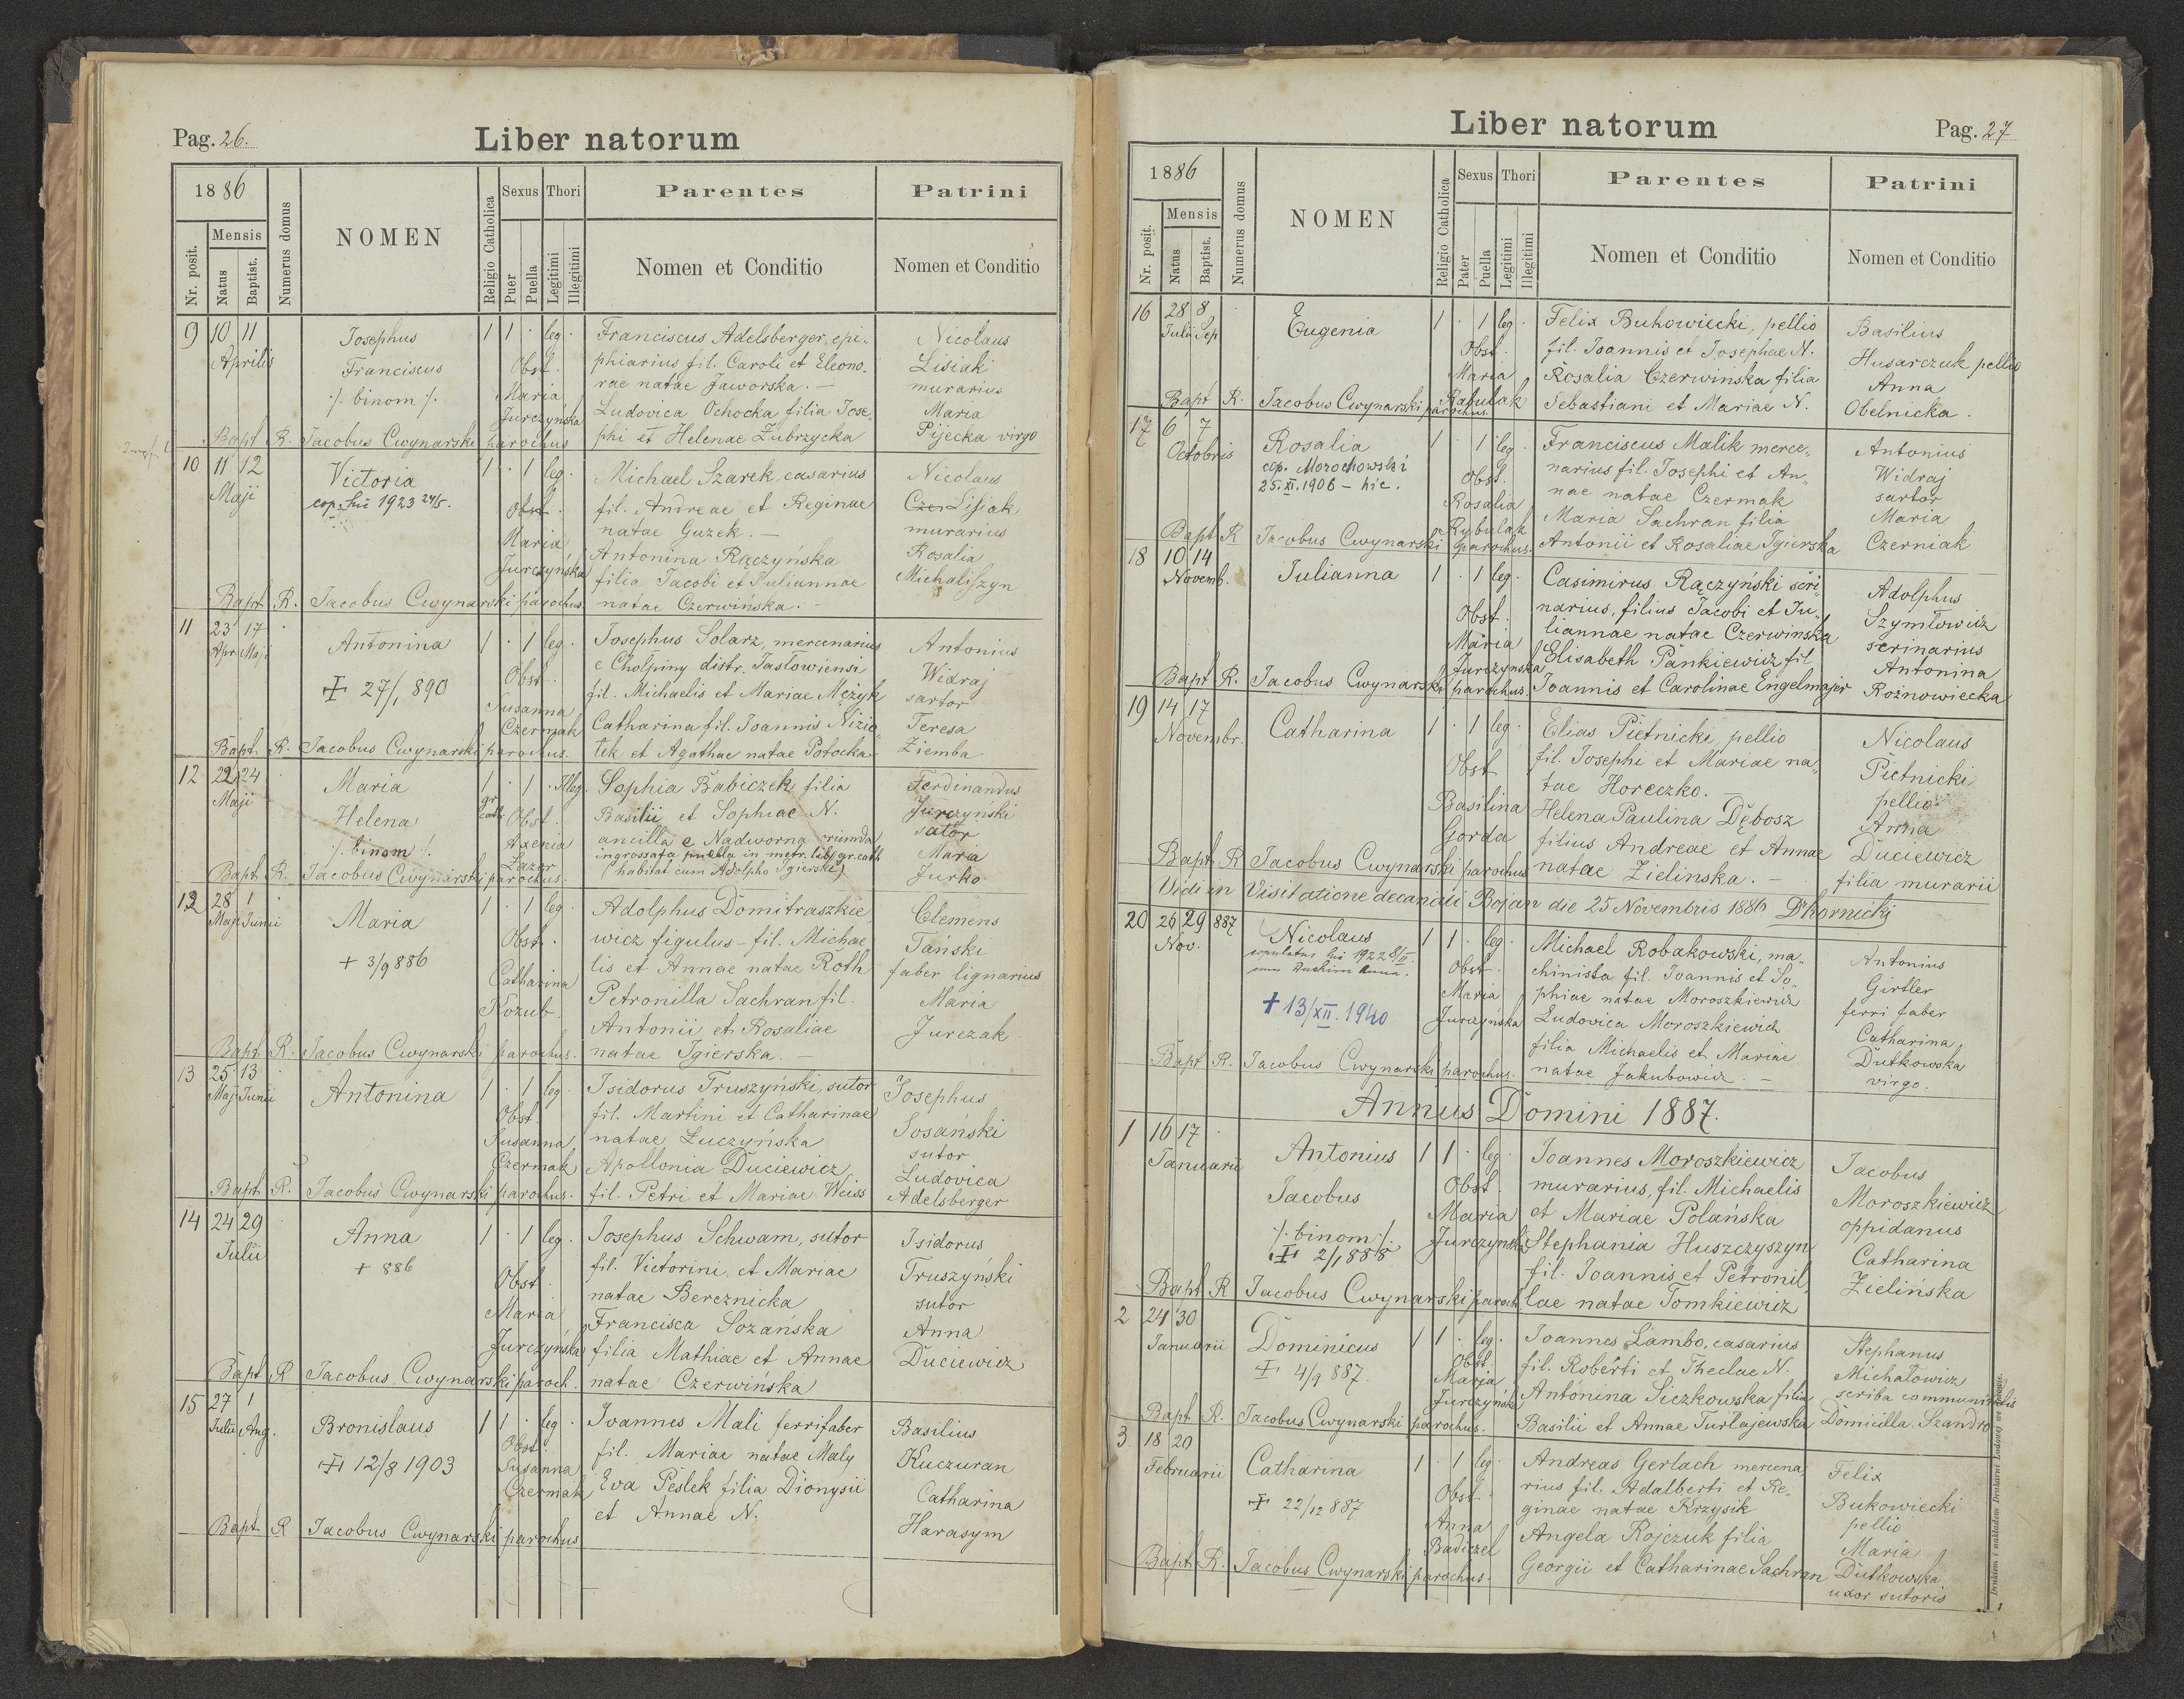 Pag. 26.
Liber natorum
1886
Nr. posit.
Mensis
Natus
Baptist.
Numerus domus
NOMEN
Religio Catholica
Sexus
Puer
Puella
Thori
Legitimi
Illegitimi
Parentes
Nomen et Conditio
Patrini
Nomen et Conditio
9 10 11 Aprilis
Josephus
Franciscus
./. binom ./.
1 1 · leg ·
Obst.
Maria
Jurczyńska
Franciscus Adelsberger, epi-
phiarius fil. Caroli et Eleono-
rae natae Jaworska. —
Ludovica Ochocka filia Jose-
phi et Helenae Zubrzycka
Nicolaus
Lisiak
murarius
Maria
Pijecka virgo
Bapt. R. Jacobus Cwynarski parochus
10 11 12 Maji
Victoria
cop. hic 1923 24/5.
1 · 1 leg ·
Obst.
Maria
Jurczyńska
Michael Szarek, casarius
fil. Andreae et Reginae
natae Guzek. —
Antonina Rączyńska
filia Jacobi et Juliannae
natae Czerwińska. —
Nicolaus
Lisiak
murarius
Rosalia
Michaliszyn
Bapt. R. Jacobus Cwynarski parochus.
11 23 17 Apr. Maji
Antonina
27/1 890
1 · 1 leg ·
Obst.
Susanna
Czermak
Josephus Solarz, mercenarius
e Chołpiny distr. Jasłowiensi
fil. Michaelis et Mariae Mężyk
Catharina fil. Joannis Nizio-
łek et Agathae natae Potocka
Antonius
Widraj
sartor
Teresa
Ziemba
Bapt. R. Jacobus Cwynarski parochus.
12 22 24 Maji
Maria
Helena
./. binom ./.
1 · 1 · Illeg.
gr. cath.
Obst.
Axenia
Lazor
Sophia Babiczek filia
Basilii et Sopheae N.
ancilla e Nadworna
ingrossata puella in metr. lib. gr. cath
(habitat cum Adolpho Igierski)
Ferdinandus
Jurczyński
sator
Maria
Jurko
Bapt. R. Jacobus Cwynarski parochus.
12 28 1 Maji Junii
Maria
+ 3/9 886
1 · 1 leg ·
Obst.
Catharina
Kozub.
Adolphus Domitraszkie-
wicz figulus - fil. Michae-
lis et Annae natae Roth
Petronilla Sachran fil.
Antonii et Rosaliae
natae Igierska. —
Clemens
Tański
faber lignarius
Maria
Jurczak
Bapt. R. Jacobus Cwynarski parochus.
13 25 13 Maj Junii
Antonina
1 · 1 leg ·
Obst.
Susanna
Czermak
Isidorus Truszyński, sutor
fil. Martini et Catharinae
natae Łuczyńska
Apollonia Duciewicz
fil. Petri et Mariae Weiss
Josephus
Sosański
sutor
Ludovica
Adelsberger
Bapt. R. Jacobus Cwynarski parochus.
14 24 29 Julii
Anna
+ 886
1 · 1 leg ·
Obst.
Maria
Jurczyńska
Josephus Schwam, sutor
fil. Victorini et Mariae
natae Bereznicka
Francisca Sozańska
filia Mathiae et Annae
natae Czerwińska
Isidorus
Truszyński
sutor
Anna
Duciewicz
Bapt. R Jacobus Cwynarski paroch.
15 27 1 Julii Aug.
Bronislaus
12/8 1903
1 1 · leg ·
Obst.
Susanna
Czermak
Joannes Mali ferrifaber
fil. Mariae natae Maly
Eva Peslek filia Dionysii
et Annae N.
Basilius
Kuczuran
Catharina
Harasym
Bapt. R Jacobus Cwynarski parochus
Liber natorum
Pag. 27
1886
Nr. posit.
Mensis
Natus
Baptist.
Numerus domus
NOMEN
Religio Catholica
Sexus
Pater
Puella
Thori
Legitimi
Illegitimi
Parentes
Nomen et Conditio
Patrini
Nomen et Conditio
16 28 8 Julii Sep
Eugenia
1 · 1 leg ·
Obst.
Maria
Rabulak
Felix Bukowiecki, pellio
fil. Joannis et Josephae N.
Rosalia Czerwinska filia
Sebastiani et Mariae N.
Basilius
Husarczuk pellio
Anna
Obelnicka.
Bapt R. Jacobus Cwynarski parochus.
17 6 7 Octobris
Rosalia
cop. Morochowski
25.XI.1906 - hic.
1 · 1 leg ·
Obst.
Rosalia
Rybulak
Franciscus Malik merce-
narius fil. Josephi et An-
nae natae Czermak
Maria Sachran filia
Antonii et Rosaliae Igierska
Antonius
Widraj
sartor
Maria
Czerniak
Bapt R Jacobus Cwynarski parochus.
18 10 14 Novemb.
Julianna
1 · 1 leg ·
Obst.
Maria
Jurczynska
Casimirus Rączyński scri-
narius, filius Jacobi et Ju-
liannae natae Czerwinska
Elisabeth Pankiewicz fil.
Joannis et Carolinae Engelmajer
Adolphus
Szymłowicz
scrinarius
Antonina
Rożnowiecka
Bapt R. Jacobus Cwynarski parochus.
19 14 17 Novembr.
Catharina
1 · 1 leg ·
Obst
Basilina
Gorda
Elias Pietnicki, pellio
fil. Josephi et Mariae na-
tae Horeczko. —
Helena Paulina Dębosz
filius Andreae et Annae
natae Zielinska. —
Nicolaus
Pietnicki
pellio
Anna
Duciewicz
filia murarii
Bapt R Jacobus Cwynarski parochus
Vidi in Visitatione decanali Bojan die 25 Novembris 1886
20 26 29 887 Nov.
Nicolaus
copulatus hic 1922 8/II.
+ 13/XII. 1940
1 1 · leg ·
Obst.
Maria
Jurczyńska
Michael Robakowski, ma-
chinista fil. Joannis et So-
phiae natae Moroszkiewicz
Ludovica Moroszkiewicz
filia Michaelis et Mariae
natae Jakubowicz. —
Antonius
Girtler
ferri faber
Catharina
Dutkowska
virgo.
Bapt R. Jacobus Cwynarski parochus.
Annus Domini 1887.
1 16 17 Januarii
Antonius
Jacobus
./. binom ./.
2/1 888
1 1 · leg ·
Obst.
Maria
Jurczynska
Joannes Moroszkiewicz
murarius, fil. Michaelis
et Mariae Polańska
Stephania Huszczyszyn
fil. Joannis et Petronil-
lae natae Tomkiewicz
Jacobus
Moroszkiewicz
oppidanus
Catharina
Zielińska
Bapt R Jacobus Cwynarski paroch
2 24 30 Januarii
Dominicus
4/9 887.
1 1 · leg ·
Obst.
Maria
Jurczyńska
Joannes Lambo, casarius
fil. Roberti et Theclae N.
Antonina Siczkowska filia
Basilii et Annae Turlajewska
Stephanus
Michałowicz
scriba communitatis
Domicilla Szandro
Bapt R. Jacobus Cwynarski parochus.
3. 18 20 Februarii
Catharina
22/12 887
1 · 1 leg ·
Obst.
Anna
Badiczel
Andreas Gerlach mercena-
rius fil. Adalberti et Re-
ginae natae Krzysik
Angela Rojczuk filia
Georgii et Catharinae Sachran
Felix
Bukowiecki
pellio
Maria
Dutkowska
uxor sutoris
Bapt R. Jacobus Cwynarski parochus.
Drukiem i nakładem Drukarni Ludowej we Lwowie.